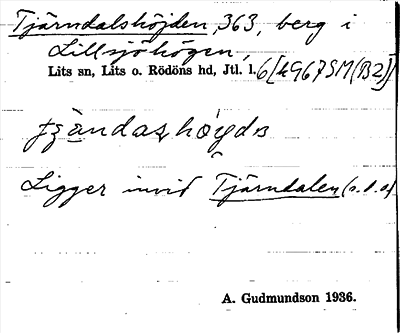 Tjärndalshöjden, 363, berg i
Lillsjöhögen,
Lits sn, Lits o. Rödöns hd, Jtl. l. 6[4967SM(B2)]
Ligger invid Tjärndalen (s.d.o)
A. Gudmundson 1936.